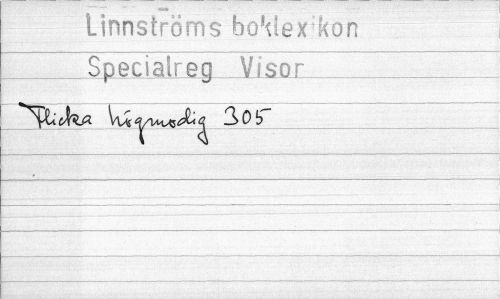 Linnströms boklexikon
Specialreg Visor
Flicka högmodig 305